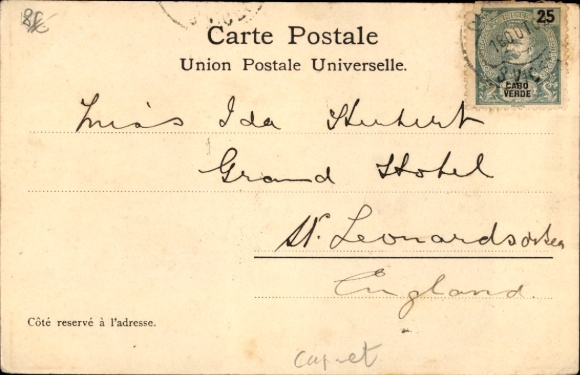 Carte Postale
Union Postale Universelle.
25
CABO
VERDE
Miss Ida Hubert
Grand Hotel
St. Leonards o/Sea
England.
Côté reservé à l'adresse.